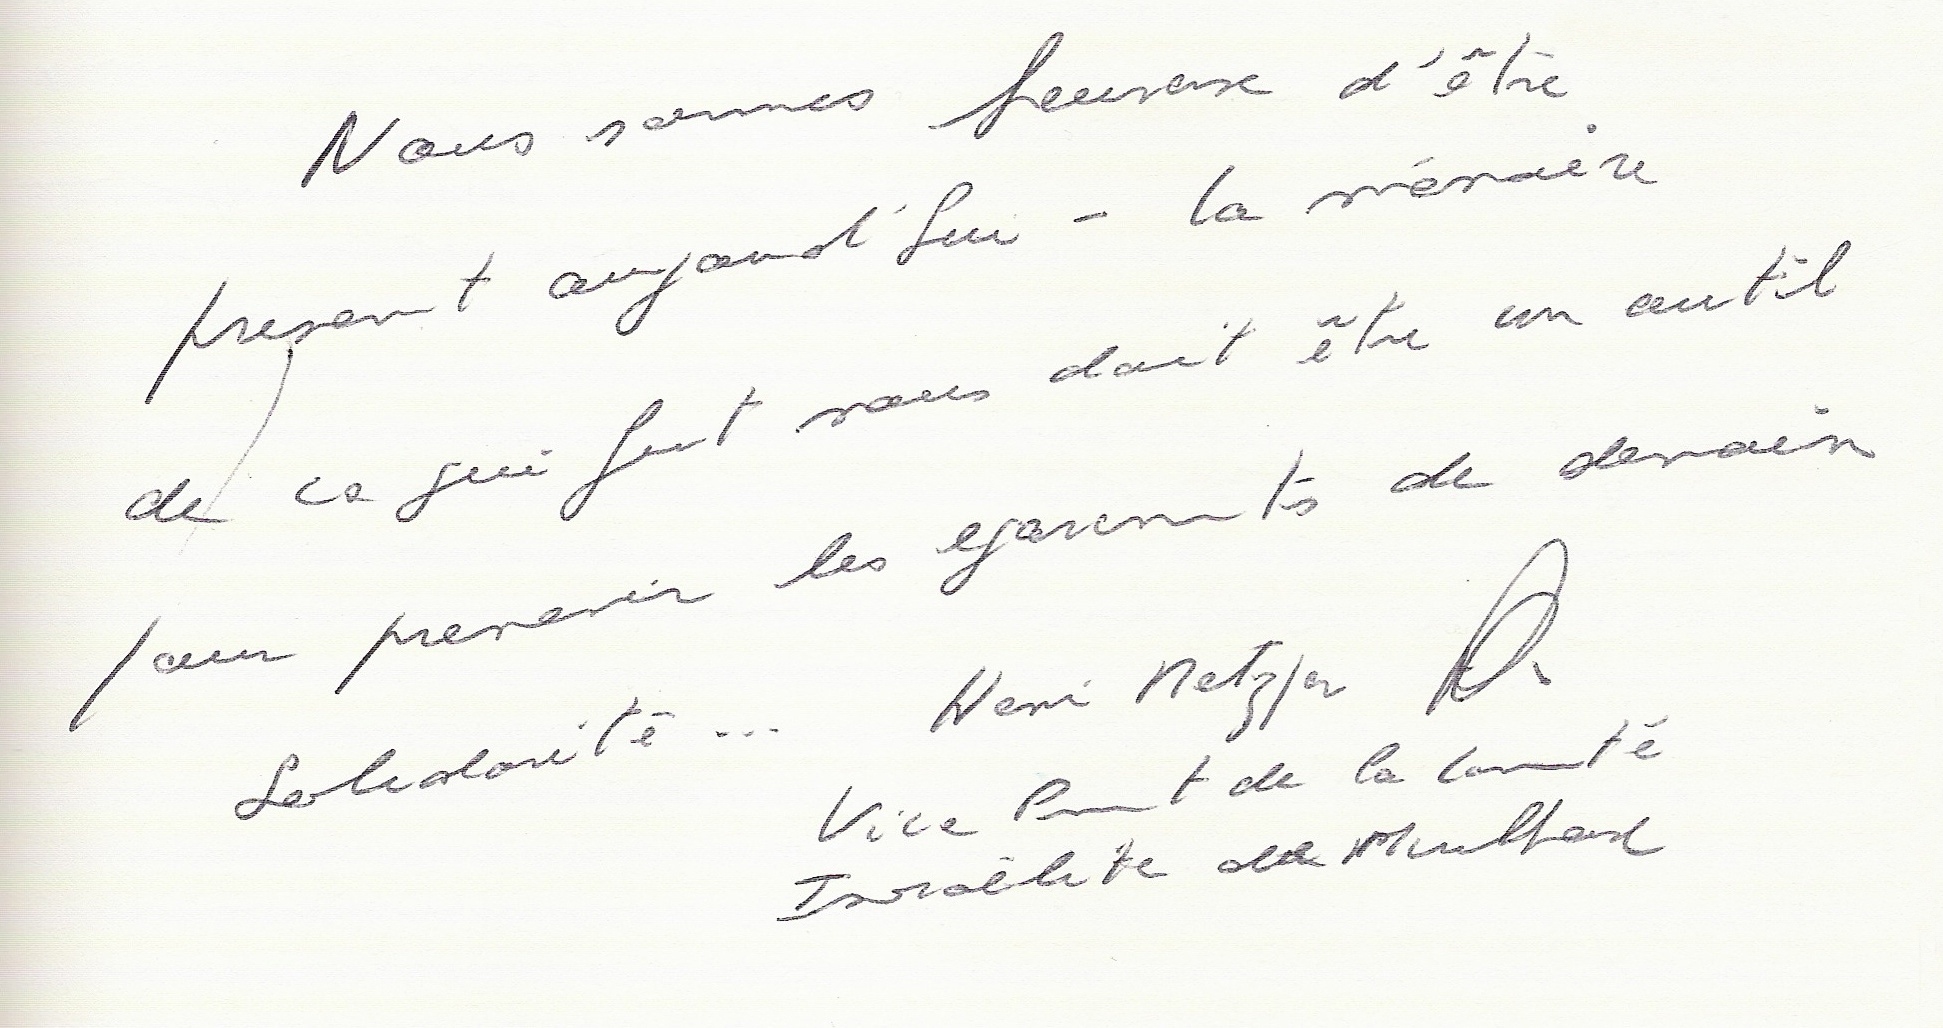 Nous sommes heureux d'être
present aujourd'hui - la mémoire
de ce qui fut nous doit être un outil
pour prevenir les egarements de demain
Solidarité ... Henri Metzger
Vice Pnt de la Cnuté
Israélite de Mulhouse